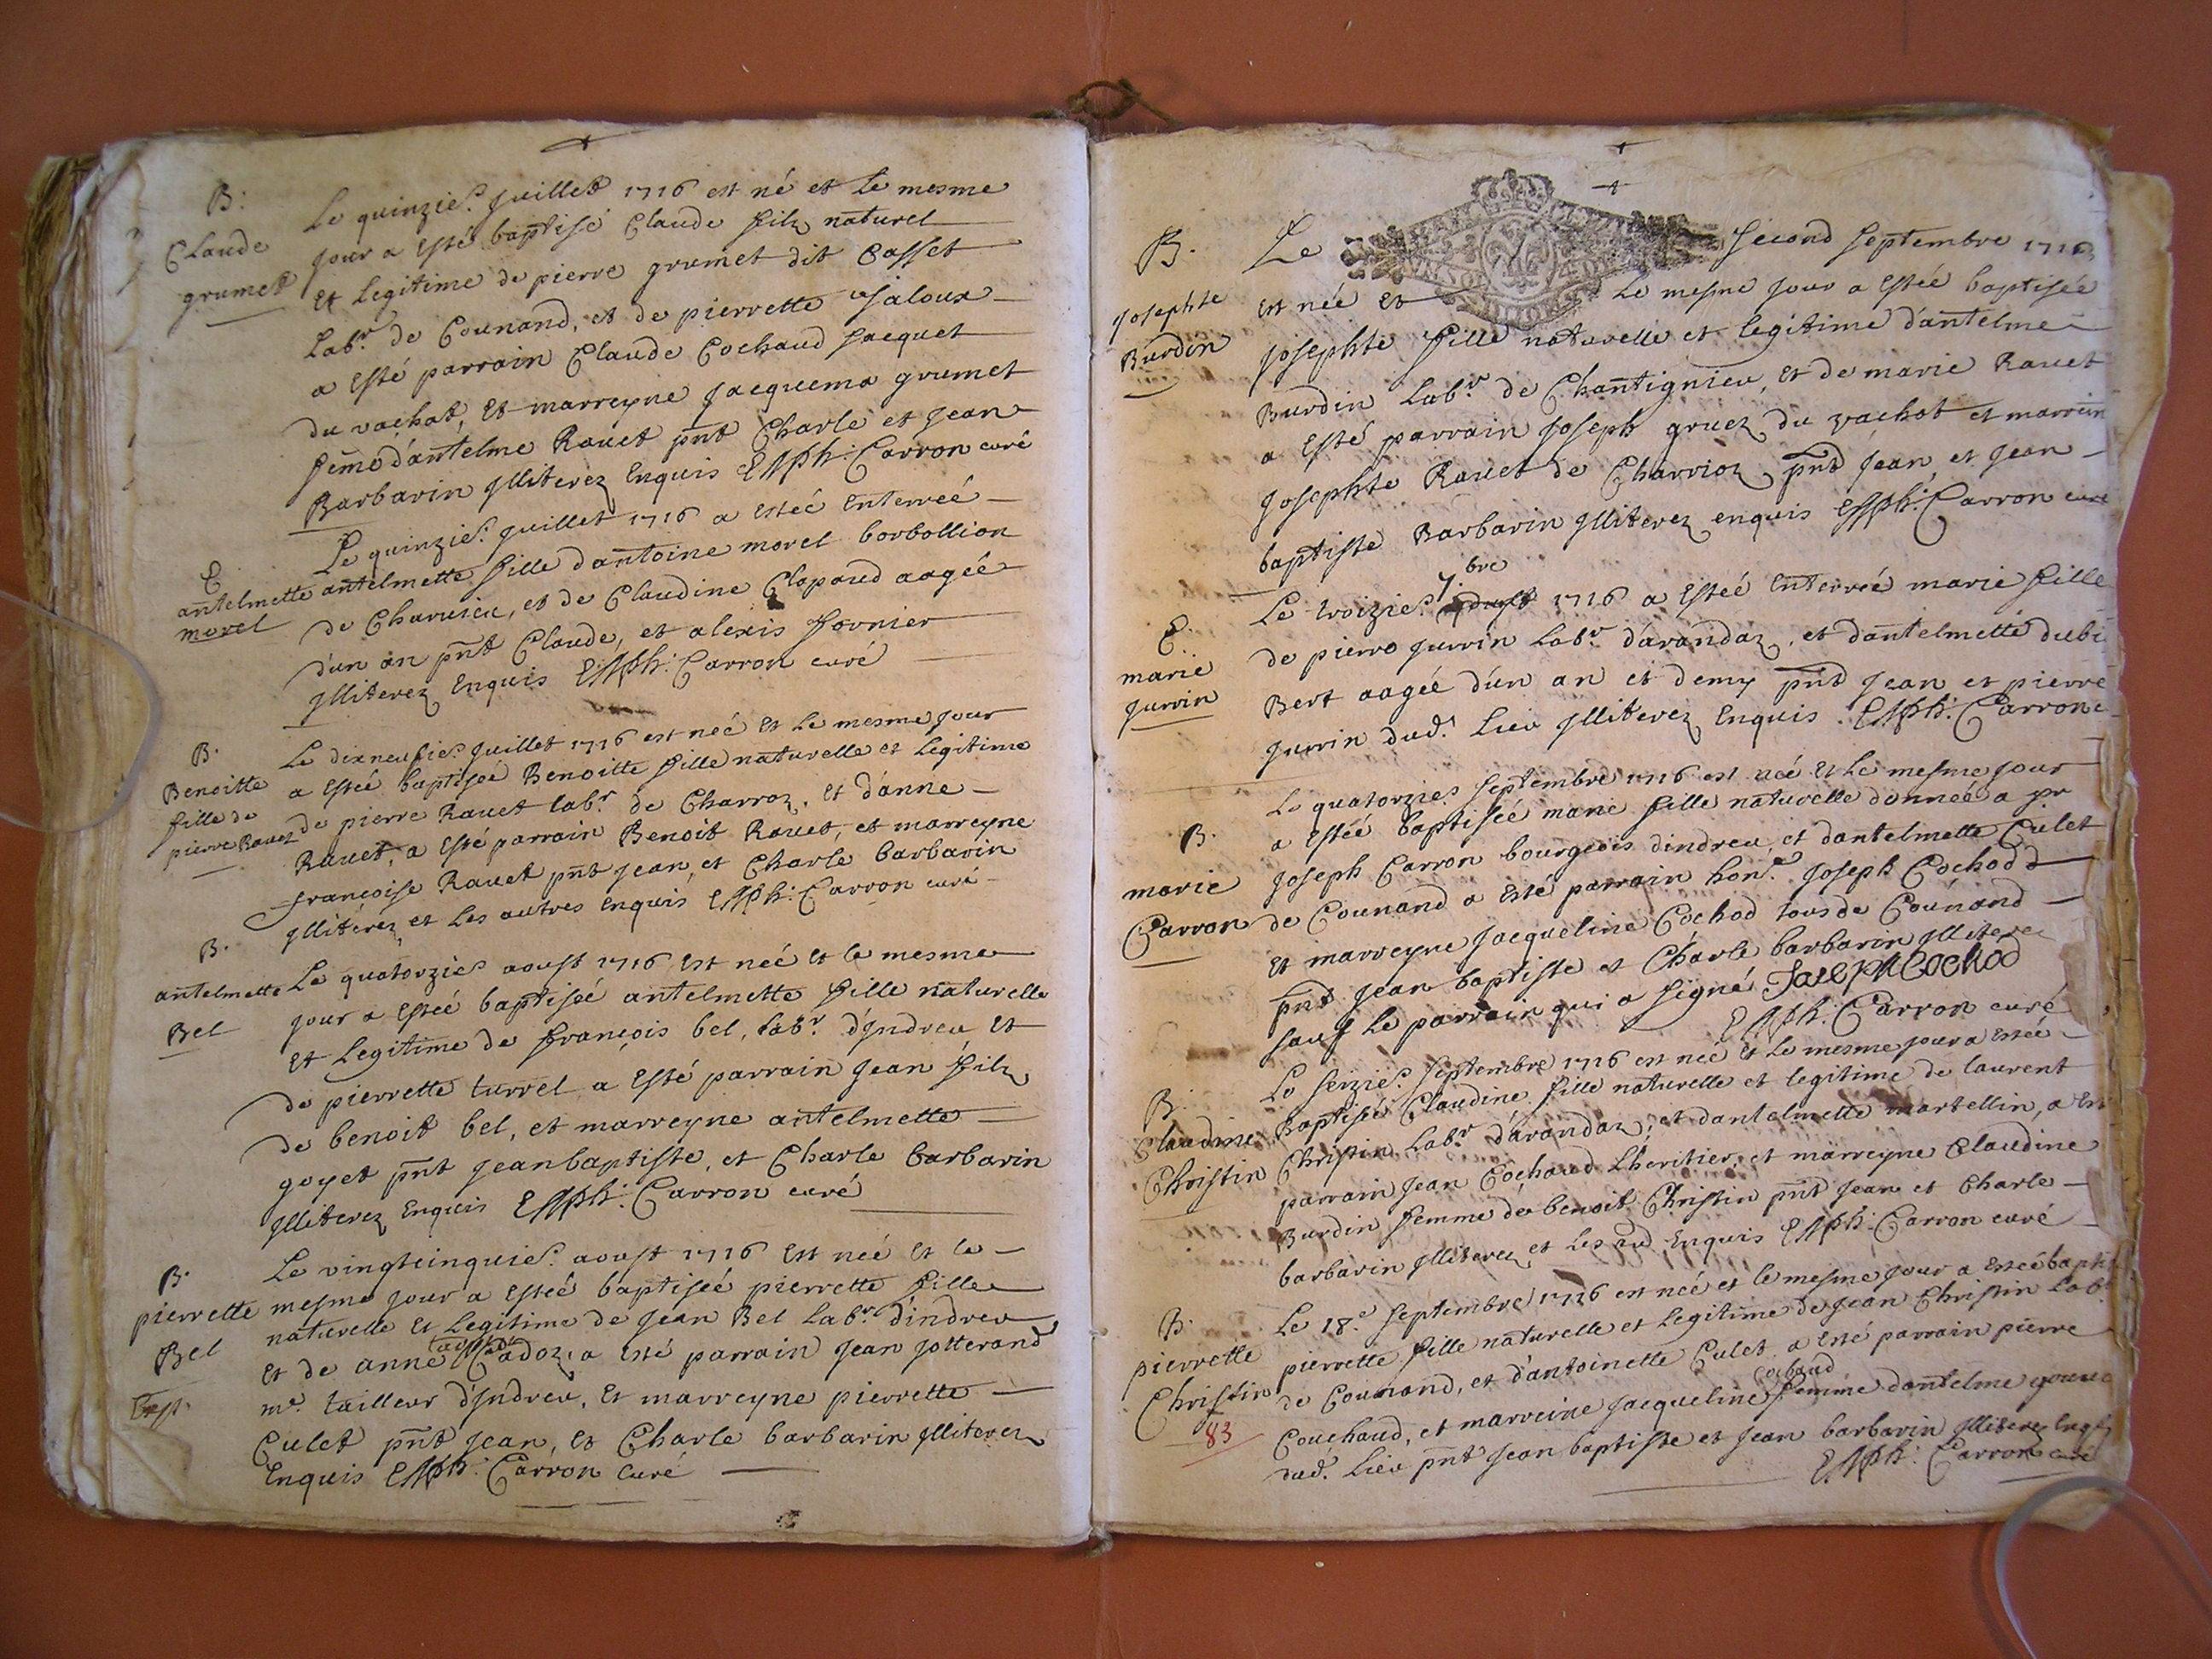 B.
Claude
grumet
Le quinzie. Juillet 1716 est né et le mesme
jour a esté baptisé Claude filz naturel
et legitime de pierre grumet dit Casset
Labr. de Counand, et de pierrette Jaloux
a esté parrain Claude Cochaud Jacquet
du vachat, et marreyne Jacquema grumet
feme d'antelme Rauet pnt Charle et Jean
Barbarin illiterez enquis Carron curé
E
antelmette
morel
Le quinzie. Juillet 1716 a estéé enterreé
antelmette fille d'antoine morel borbollion
de Charuieu, et de Claudine Clapaud aagéé
d'un an pnt Claude, et alexis fornier
illiterez enquis Carron curé
B.
Benoitte
fille de
pierre Rauet
Le dixneufie. Juillet 1716 est néé et le mesme jour
a estéé baptiséé Benoitte fille naturelle et legitime
de pierre Rauet labr. de Charroz, et d'anne
Rauet, a esté parrain Benoit Rauet, et marreyne
francoise Rauet pnt Jean, et Charle barbarin
illiterez et les autres enquis Carron curé
B.
antelmette
Bel
Le quatorzie aoust 1716 est néé et le mesme
jour a estéé baptiséé antelmette fille naturelle
et legitime de françois bel, labr. d'Indreu et
de pierrette turrel a esté parrain Jean filz
de benoit bel, et marreyne antelmette
goyet pnt Jeanbaptiste, et Charle barbarin
illiterez enquis Carron curé
B.
pierrette
Bel
Exp.
Le vingtcinquie. aoust 1716 est néé et le
mesme jour a estéé baptiséé pierrette fille
naturelle et legitime de Jean Bel labr. d'indreu
et de anne Cadoz, a esté parrain Jean Jotterand
me. tailleur d'Indreu, et marreyne pierrette
Culet pnt Jean, et Charle barbarin illiterez
enquis Carron Curé
B.
Josephte
Burdin
Le second septembre 1716
est née et le mesme jour a estéé baptiséé
Josephte fille naturelle et legitime d'antelme
Burdin labr. de Chantignieu, et de marie Rauet
a esté parrain Joseph gruez du vachat et marrein
Josephte Rauet de Charrioz pnt Jean et Jean
baptiste Barbarin illiterez enquis Carron curé
E.
marie
Jurrin
7.bre
Le troizie. 1716 a estéé enterréé marie fille
de pierre Jurrin labr. d'arandaz, et d'antelmette dubi
Bert aagéé d'un an et demy pnt Jean et pierre
Jurrin dud. lieu illiterez enquis Carron
B.
marie
Carron
Le quatorzie. septembre 1716 est néé et le mesme jour
a estéé baptiséé marie fille naturelle donneé a
Joseph Carron bourgeois dindreu, et dantelmette Culet
de Counand a esté parrain hon. Joseph Cochod
et marreyne Jacqueline Cochod tous de Counand
pnt Jean baptiste et Charle barbarin illiterez
sauf le parrain qui a signé Joseph Cochod
Carron curé
B.
Claudine
Christin
Le seizie. septembre 1716 est néé et le mesme jour a estéé
baptiséé Claudine fille naturelle et legitime de laurent
Christin labr. d'arandaz, et dantelmette martellin, a esté
parrain Jean Cochaud Lheritier, et marreyne Claudine
Burdin femme de benoit Christin pnt Jean et Charle
barbarin illiterez et les enquis Carron curé
B.
pierrette
Christin
83
Le 18.e septembre 1716 est néé et le mesme jour a estéé bapti
pierrette fille naturelle et legitime de Jean Christin lab
de Counand, et d'antoinette Culet a esté parrain pierre
Couchaud, et marreine Jacqueline femme dantelme
dud. lieu pnt Jean baptiste et Jean barbarin illiterez enq
Carron curé